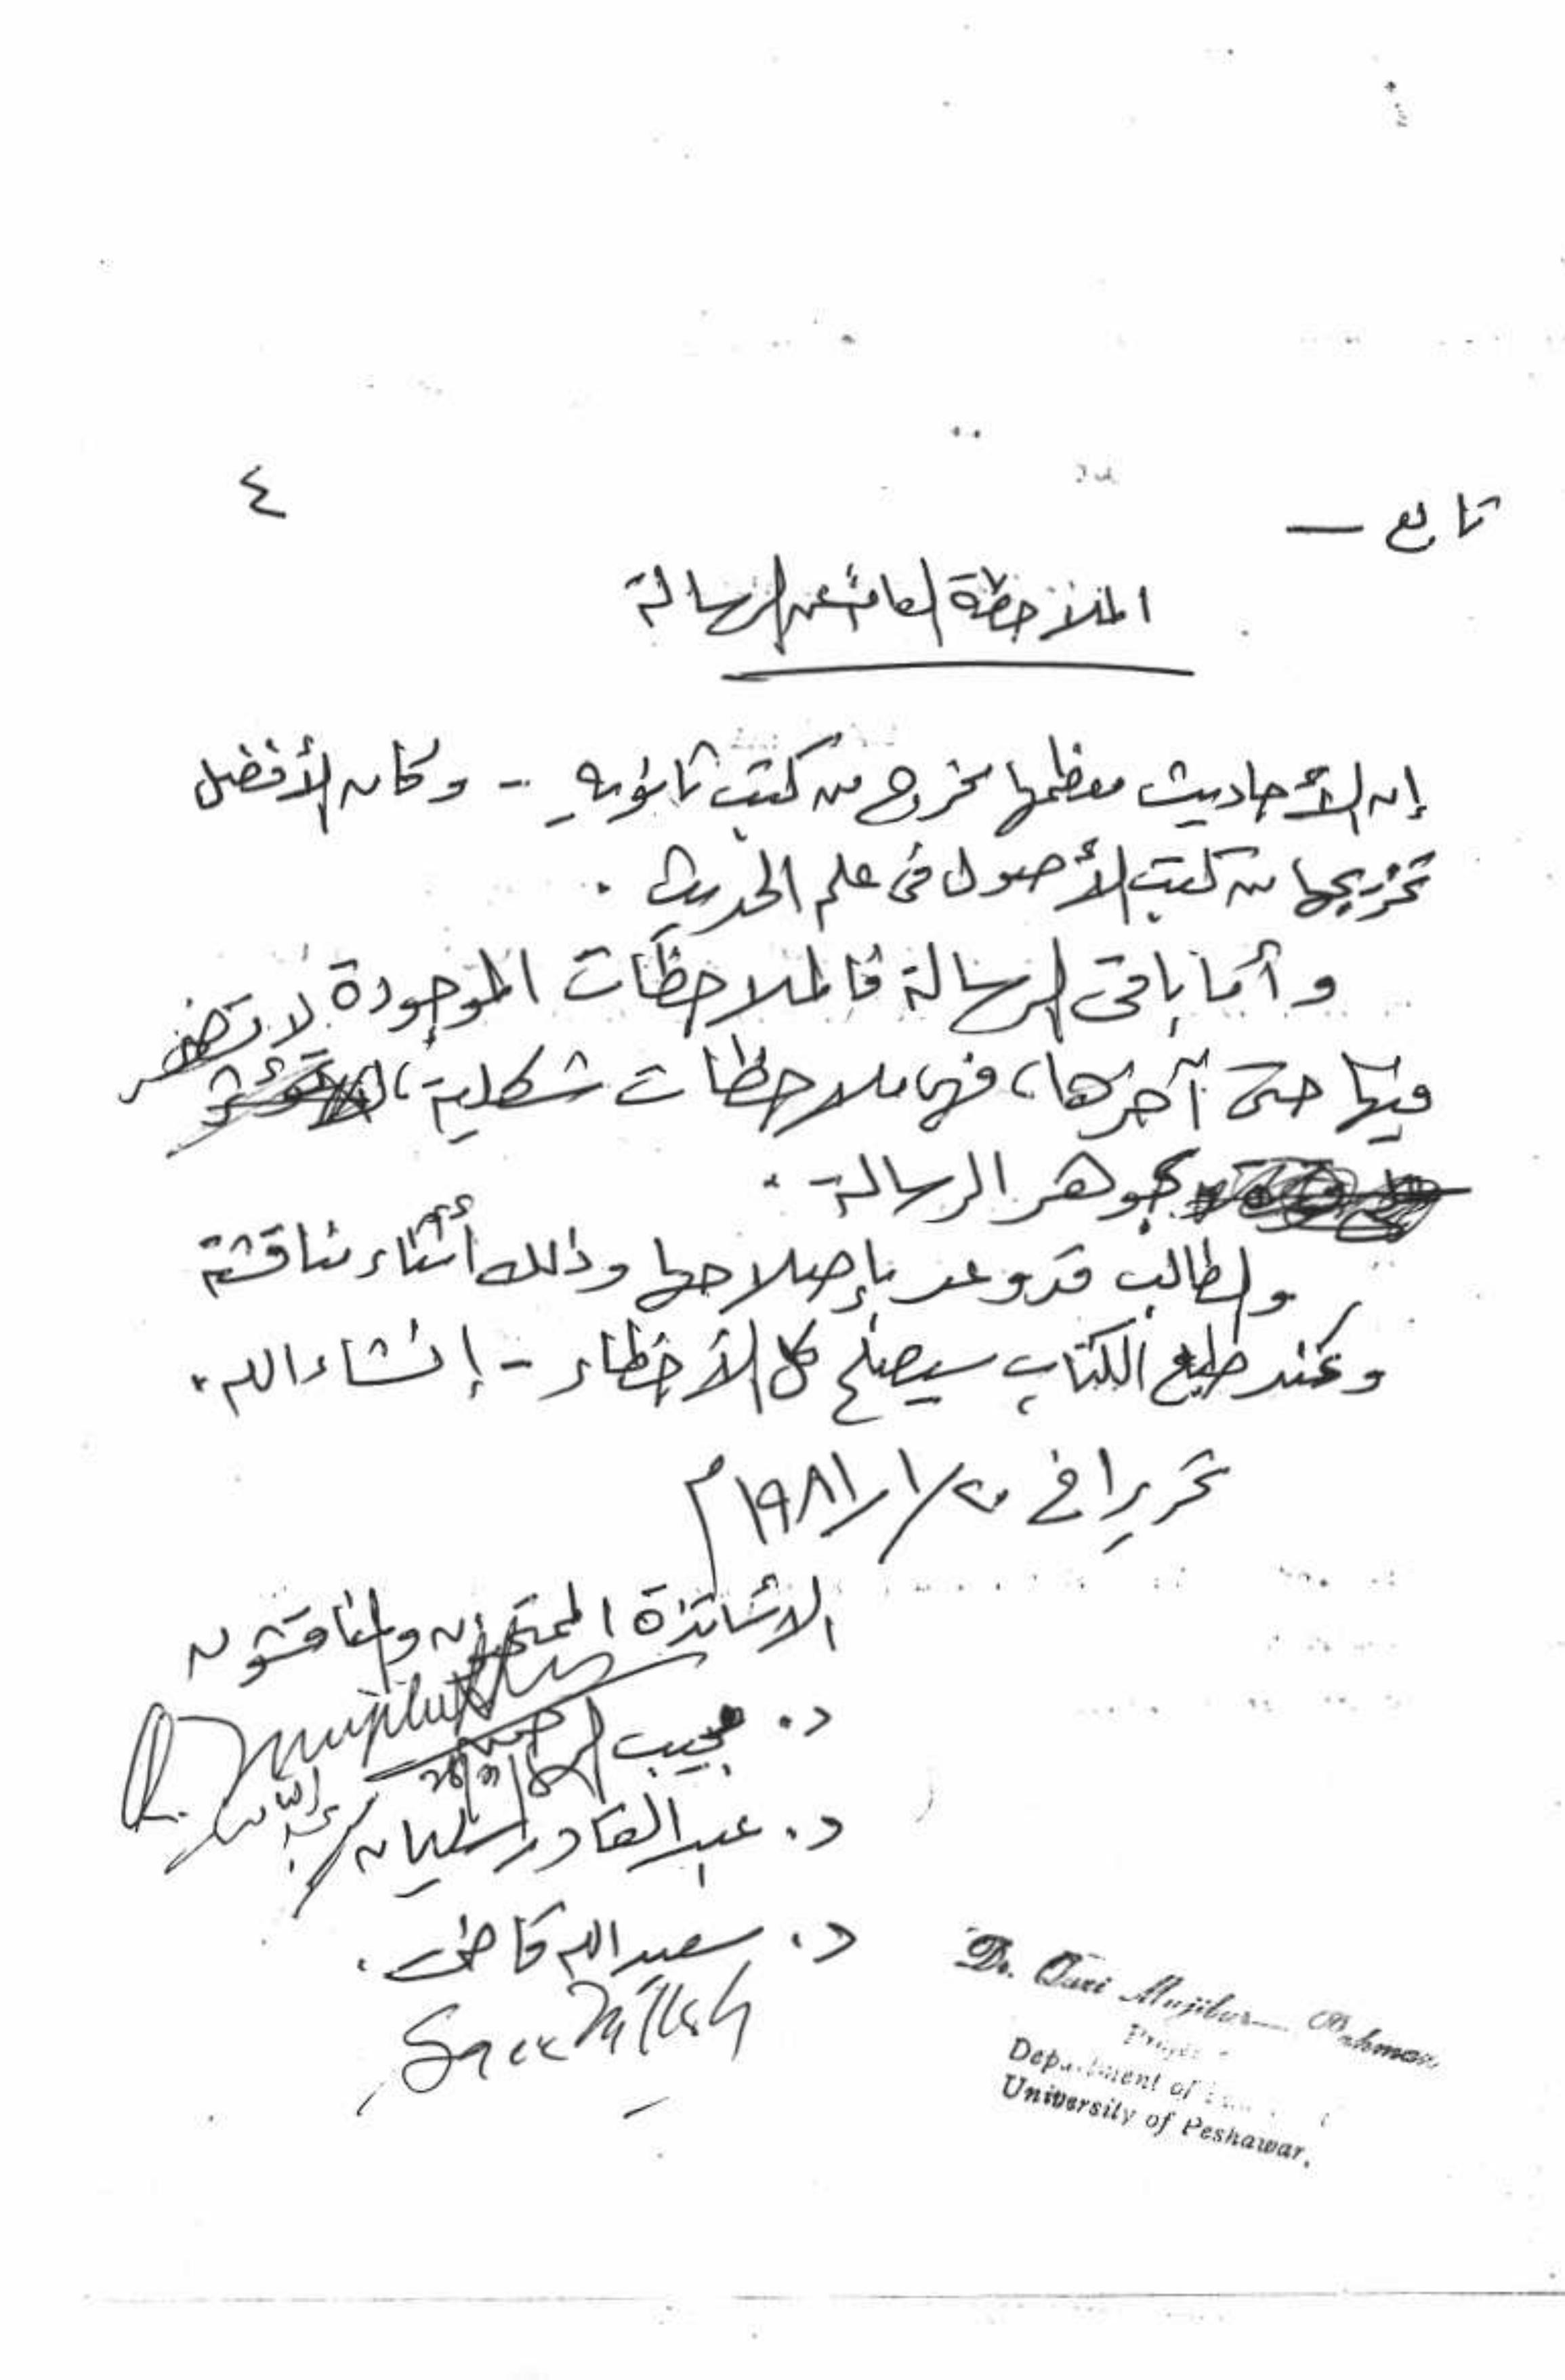 ٤
تابع —
الملاحظة العامة عن الرسالة
إن الأحاديث معظمها مخرج من كتب ثانوية - وكان الأفضل
تخريجها من كتب الأصول في علم الحديث .
وأما باقي الرسالة فالملاحظات الموجودة لا تضر
فيها حتى آخرها، فهي ملاحظات شكلية،
بجوهر الرسالة .
والطالب قد وعد بإصلاحها وذلك أثناء مناقشة
وعند طبع الكتاب سيصلح كل الأخطاء - إنشاء الله .
تحريرا في ٢٠/١/١٩٨١م
الأساتذة الممتحنون والمناقشون
د. مجيب الرحمن
د. عبد القادر سليمان
د. سعيد الله قاضى .
Saeedullah
Dr. Qari Mujibur Rahman
Department of
University of Peshawar.